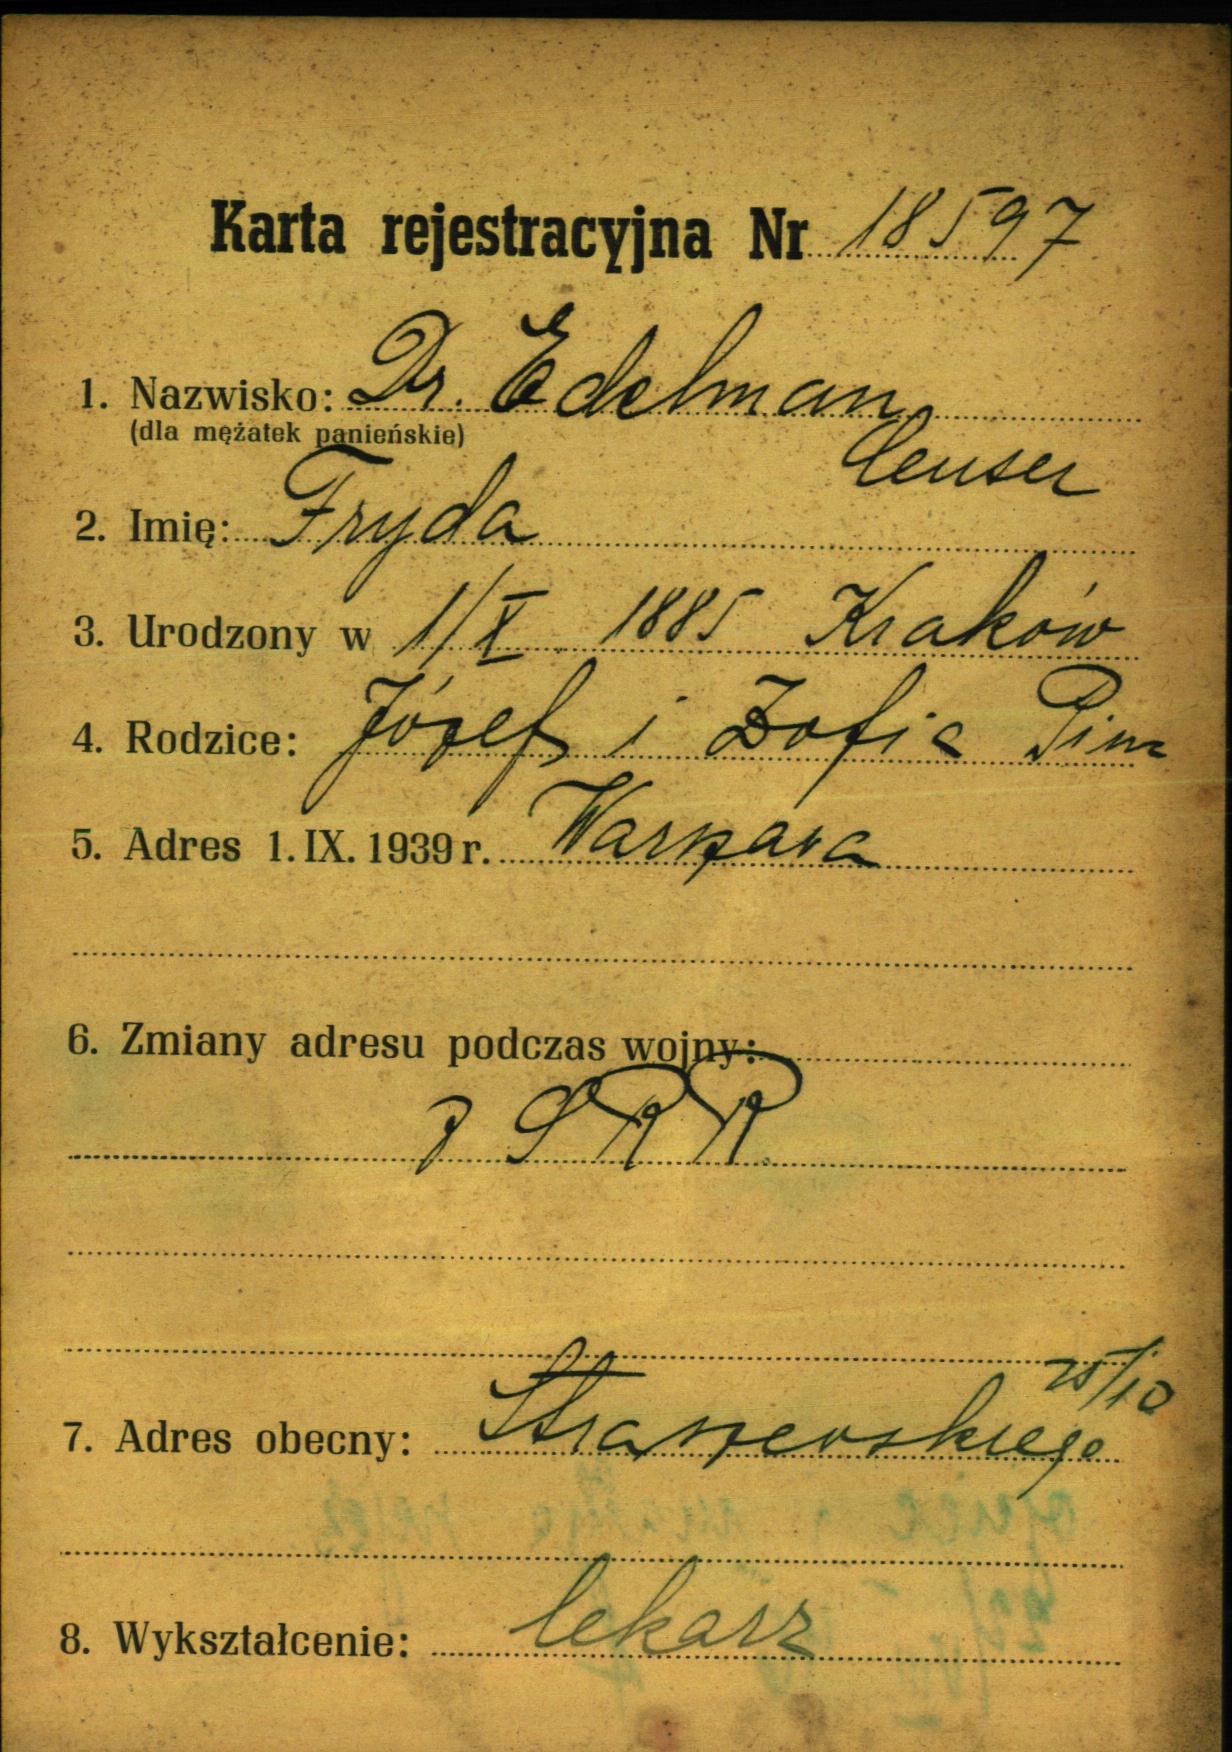 Karta rejestracyjna Nr 18597
1. Nazwisko: Dr. Edelman
(dla mężatek panieńskie)
Censer
2. Imię: Fryda
3. Urodzony w 1/X 1885 Kraków
4. Rodzice: Józef i Zofia
5. Adres 1. IX. 1939 r. Warszawa
6. Zmiany adresu podczas wojny:
z SRR
25/10
7. Adres obecny: Straszewskiego
8. Wykształcenie: lekarz